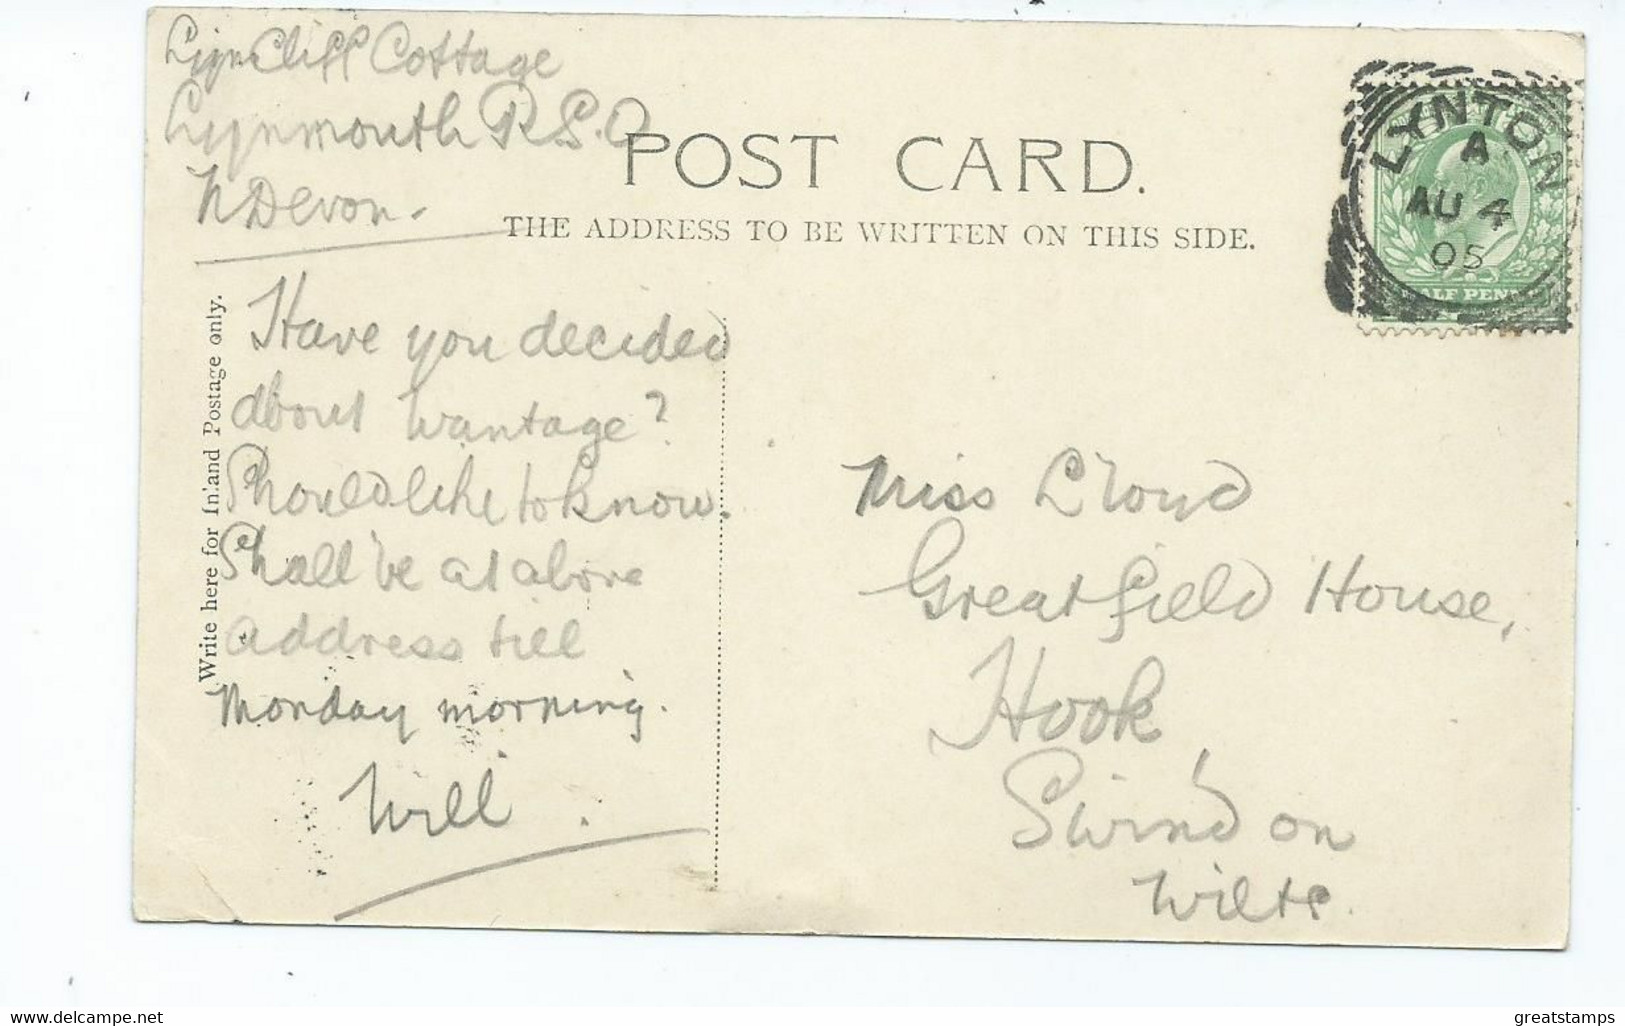 LynCliff Cottage
Lynmouth R.S.O
N Devon.
POST CARD.
THE ADDRESS TO BE WRITTEN ON THIS SIDE.
LYNTON
A
AU 4
05
HALF PENNY
Write here for Inland Postage only.
Have you decided
about Wantage?
Should like to know.
Shall be at above
address till
Monday morning.
Will
Miss Lloyd
Greatfield House,
Hook
Swindon
Wilts.
delcampe.net
greatstamps